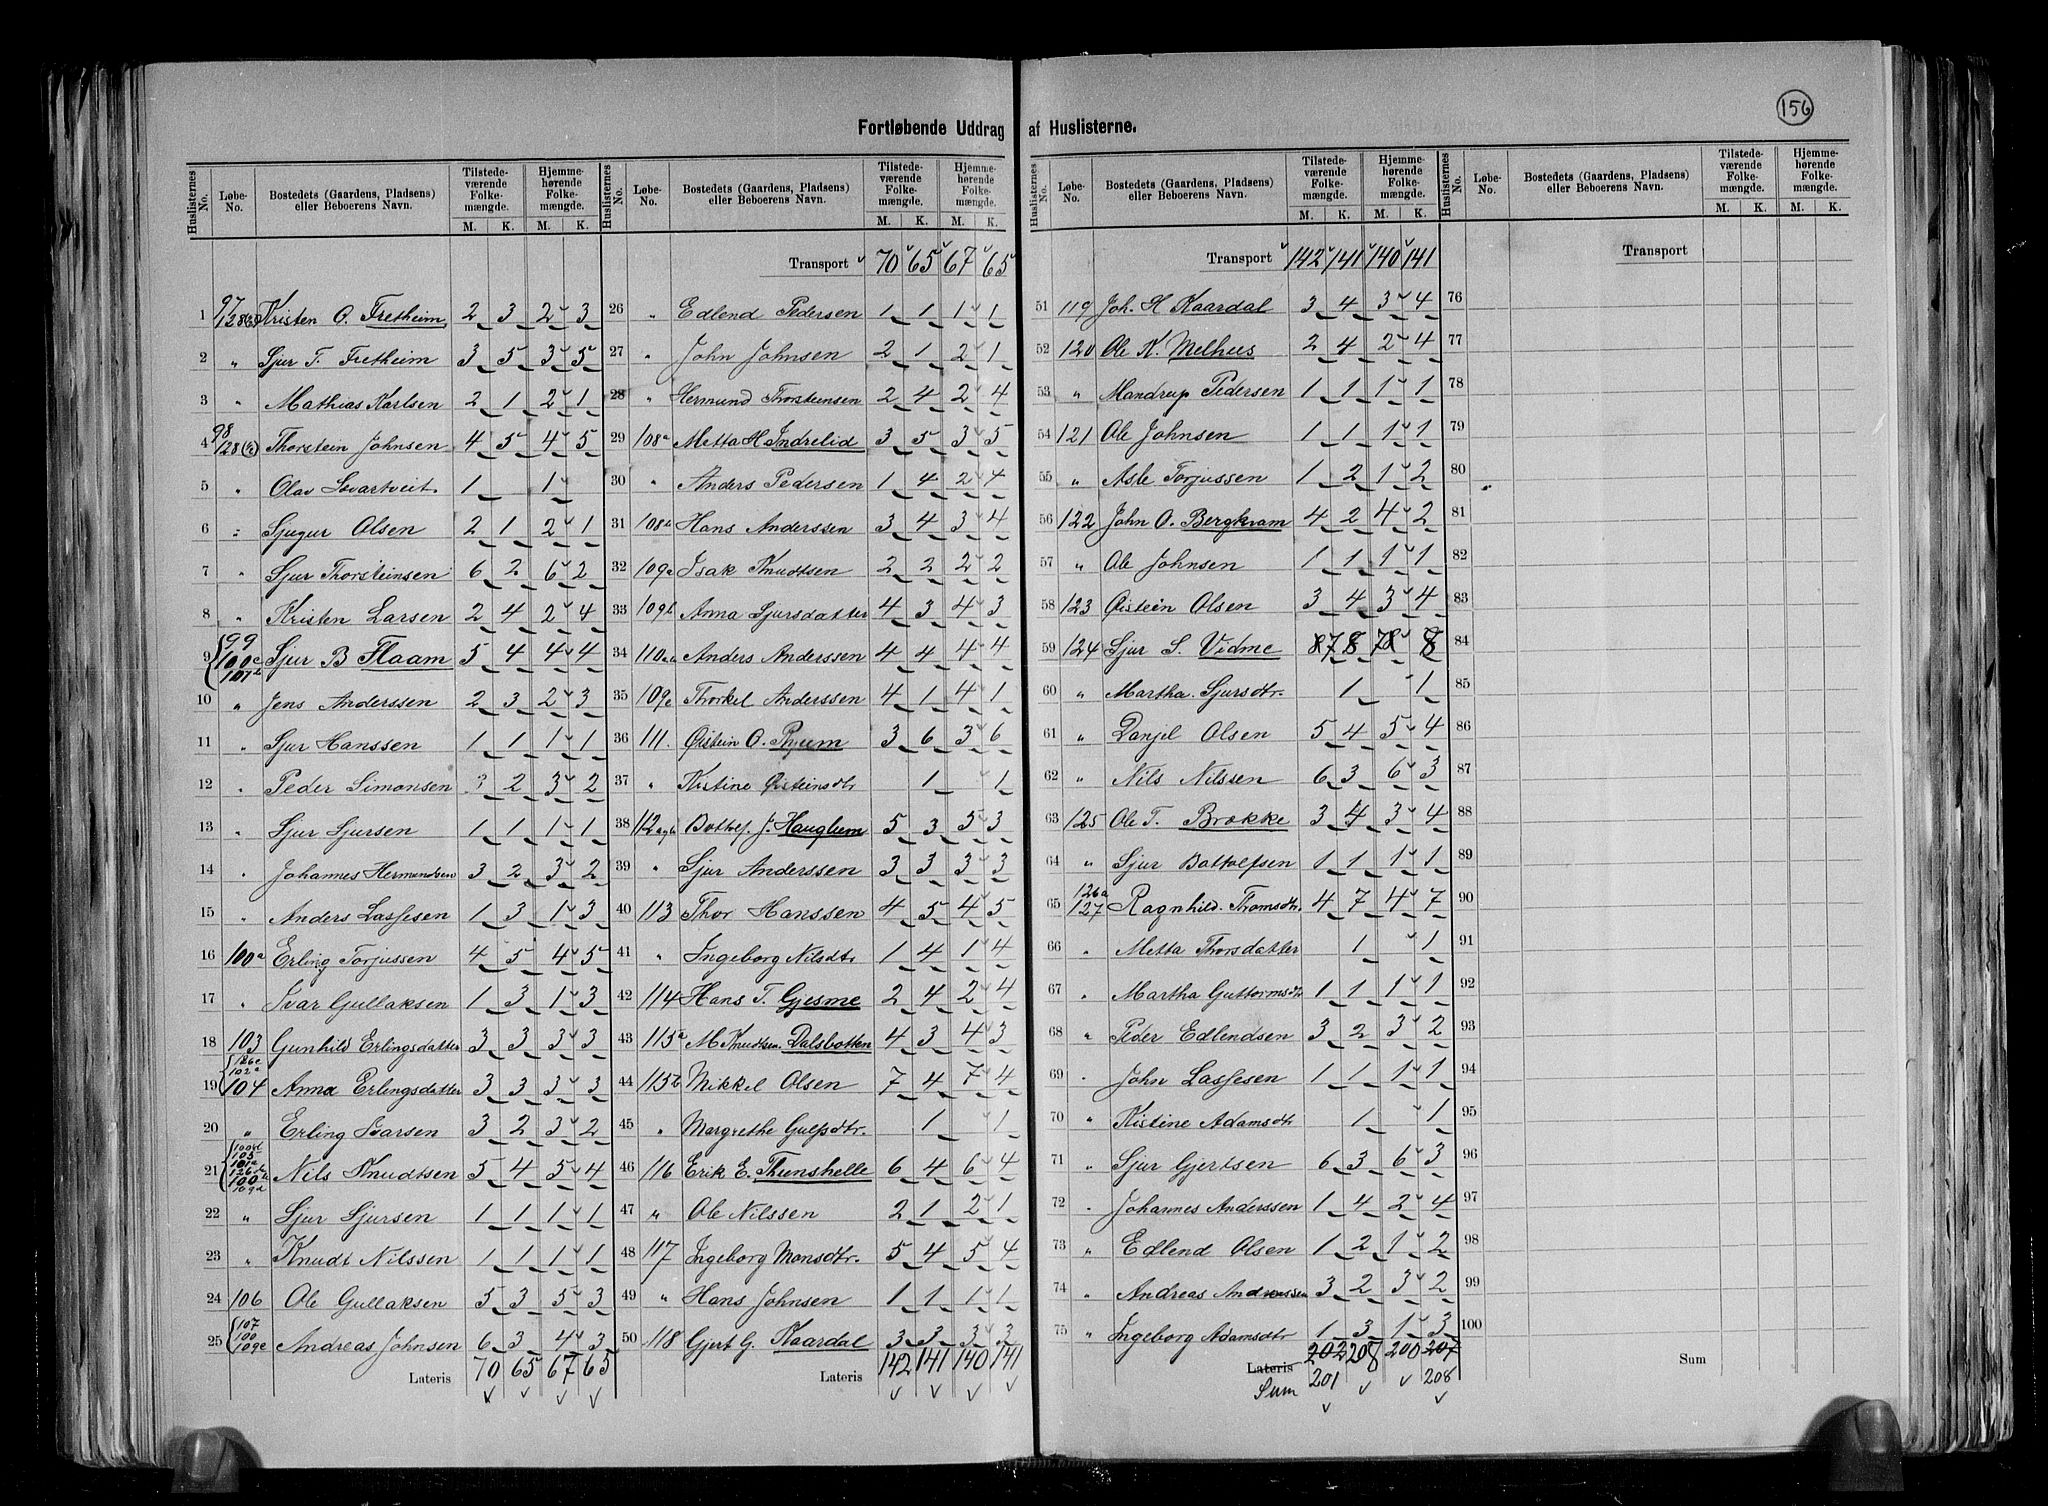 156
Fortløbende Uddrag af Huslisterne.
Huslisternes No. | Løbe-No. | Bostedets (Gaardens, Pladsens) eller Beboerens Navn. | Tilstedeværende Folkemængde. M. K. | Hjemmehørende Folkemængde. M. K.
1 97 128 Kristen O. Fretheim 2 3 2 3
2 " Sjur T. Fretheim 3 5 3 5
3 " Mathias Karlsen 2 1 2 1
4 98 128 Thorstein Johnsen 4 5 4 5
5 " Olav Svartveit. 1 1
6 " Sjugur Olsen 2 1 2 1
7 " Sjur Thorsteinsen 6 2 6 2
8 " Kristen Larsen 2 4 2 4
9 99 100c 101b Sjur B Flaam 5 4 4 4
10 " Jens Anderssen 2 3 2 3
11 " Sjur Hanssen 1 1 1 1
12 " Peder Simonsen 3 2 3 2
13 " Sjur Sjursen 1 1 1 1
14 " Johannes Hermundsen 3 2 3 2
15 " Anders Lassesen 1 3 1 3
16 100a Erling Torjussen 4 5 4 5
17 " Ivar Gullaksen 1 3 1 3
18 103 Gunhild Erlingsdatter 3 3 3 3
19 126c 102a 104 Anna Erlingsdatter 3 3 3 3
20 " Erling Ivarsen 3 2 3 2
21 100d 105 101a 126b 100b 109d Nils Knudtsen 5 4 5 4
22 " Sjur Sjursen 1 1 1 1
23 " Knudt Nilssen 1 1 1 1
24 106 Ole Gullaksen 5 3 5 3
25 107 100 109e Andreas Johnsen 6 3 4 3
Lateris 70 65 67 65
Huslisternes No. | Løbe-No. | Bostedets (Gaardens, Pladsens) eller Beboerens Navn. | Tilstedeværende Folkemængde. M. K. | Hjemmehørende Folkemængde. M. K.
Transport 70 65 67 65
26 " Edlend Pedersen 1 1 1 1
27 " John Johnsen 2 1 2 1
28 " Hermund Thorsteinsen 2 4 2 4
29 108a Metta H Indrelid 3 5 3 5
30 " Anders Pedersen 1 4 2 4
31 108b Hans Anderssen 3 4 3 4
32 109a Isak Knudtsen 2 2 2 2
33 109b Anna Sjursdatter 4 3 4 3
34 110ab Anders Anderssen 4 4 4 4
35 109c Thorkel Anderssen 4 1 4 1
36 111. Øistein O. Ryum 3 6 3 6
37 " Kristine Øisteinsdtr 1 1
38 112a,b Bottolf J. Hauglum 5 3 5 3
39 " Sjur Anderssen 3 3 3 3
40 113 Thor Hanssen 4 5 4 5
41 " Ingeborg Nilsdtr 1 4 1 4
42 114 Hans T. Gjesme 2 4 2 4
43 115a M Knudtsen. Dalsbotten 4 3 4 3
44 115b Mikkel Olsen 7 4 7 4
45 " Margrethe Gulfsdtr. 1 1
46 116 Erik E. Thunshelle 6 4 6 4
47 " Ole Nilssen 2 1 2 1
48 117 Ingeborg Monsdtr. 5 4 5 4
49 " Hans Johnsen 1 1 1 1
50 118 Gjert G. Kaardal 3 3 3 3
Lateris 142 141 140 141
Huslisternes No. | Løbe-No. | Bostedets (Gaardens, Pladsens) eller Beboerens Navn. | Tilstedeværende Folkemængde. M. K. | Hjemmehørende Folkemængde. M. K.
Transport 142 141 140 141
51 119 Joh. H Kaardal 3 4 3 4
52 120 Ole K. Melhus 2 4 2 4
53 " Mandrup Pedersen 1 1 1 1
54 121 Ole Johnsen 1 1 1 1
55 " Asle Torjussen 1 2 1 2
56 122 John O. Bergkvam 4 2 4 2
57 " Ole Johnsen 1 1 1 1
58 123 Øistein Olsen 3 4 3 4
59 124 Sjur S. Vidme 87 8 78 8
60 " Martha Sjursdtr. 1 1
61 " Danjel Olsen 5 4 5 4
62 " Nils Nilssen 6 3 6 3
63 125 Ole T. Brække 3 4 3 4
64 " Sjur Bottolfsen 1 1 1 1
65 126a 127 Ragnhild Thomsdtr. 4 7 4 7
66 " Metta Thorsdatter 1 1
67 " Martha Guttormsdtr 1 1 1 1
68 " Peder Edlendsen 3 2 3 2
69 " John Lassesen 1 1 1 1
70 " Kistine Adamsdtr 1 1
71 " Sjur Gjertsen 6 3 6 3
72 " Johannes Anderssen 1 4 2 4
73 " Edlend Olsen 1 2 1 2
74 " Andreas Anderssen 3 2 3 2
75 " Ingeborg Adamsdtr 1 3 1 3
Lateris 202 208 200 207
Sum 201 208
Huslisternes No. | Løbe-No. | Bostedets (Gaardens, Pladsens) eller Beboerens Navn. | Tilstedeværende Folkemængde. M. K. | Hjemmehørende Folkemængde. M. K.
Transport
76
77
78
79
80
81
82
83
84
85
86
87
88
89
90
91
92
93
94
95
96
97
98
99
100
Sum